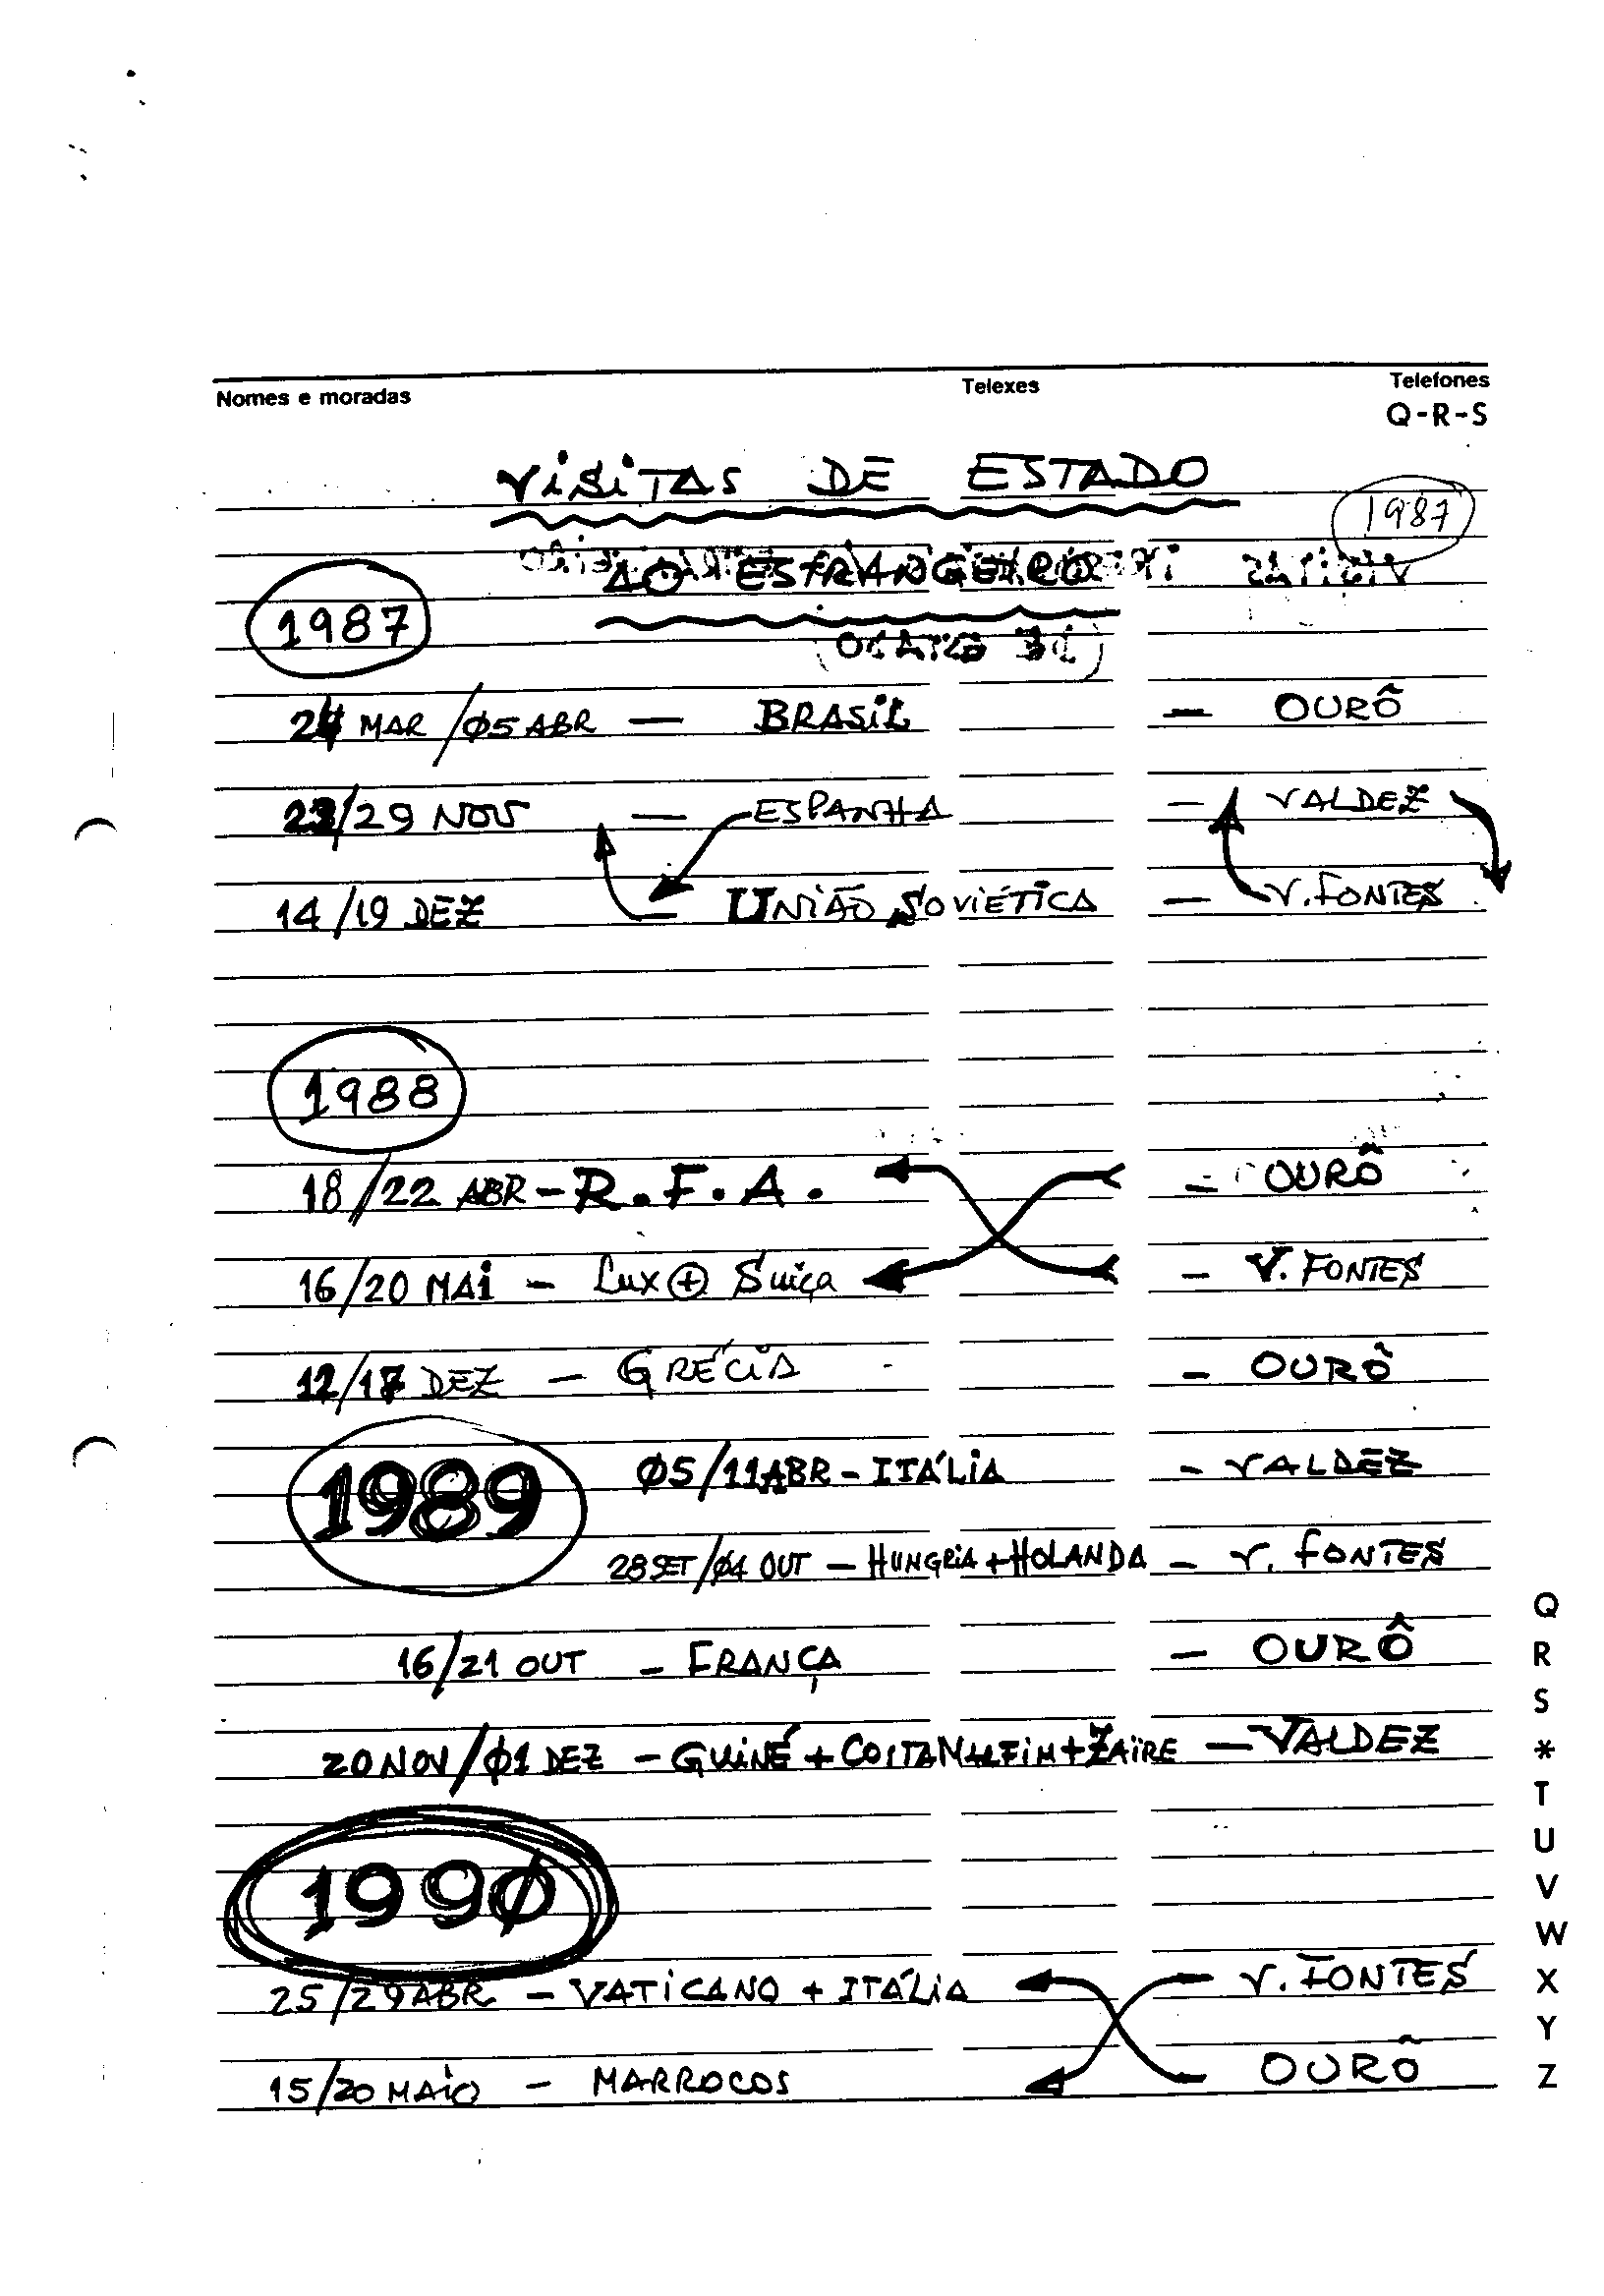 Nomes e moradas Telexes Telefones
Q-R-S
VISITAS DE ESTADO
1987
AO ESTRANGEIRO
1987
24 MAR/05 ABR — BRASIL — OURÔ
/29 NOV — ESPANHA — VALDEZ
14/19 DEZ — UNIÃO SOVIÉTICA — V. FONTES
1988
18/22 ABR - R.F.A. — OURÔ
16/20 MAI - Lux + Suiça — V. FONTES
12/17 DEZ — GRÉCIA - — OURÔ
1989
05/11 ABR - ITÁLIA - VALDEZ
28 SET/04 OUT - HUNGRIA + HOLANDA - V. FONTES
16/21 OUT - FRANÇA — OURÔ
20 NOV/01 DEZ - GUINÉ + COSTA MALFIM + ZAÏRE — VALDEZ
1990
25/29 ABR - VATICANO + ITÁLIA V. FONTES
15/20 MAIO - MARROCOS OURÔ
Q
R
S
*
T
U
V
W
X
Y
Z